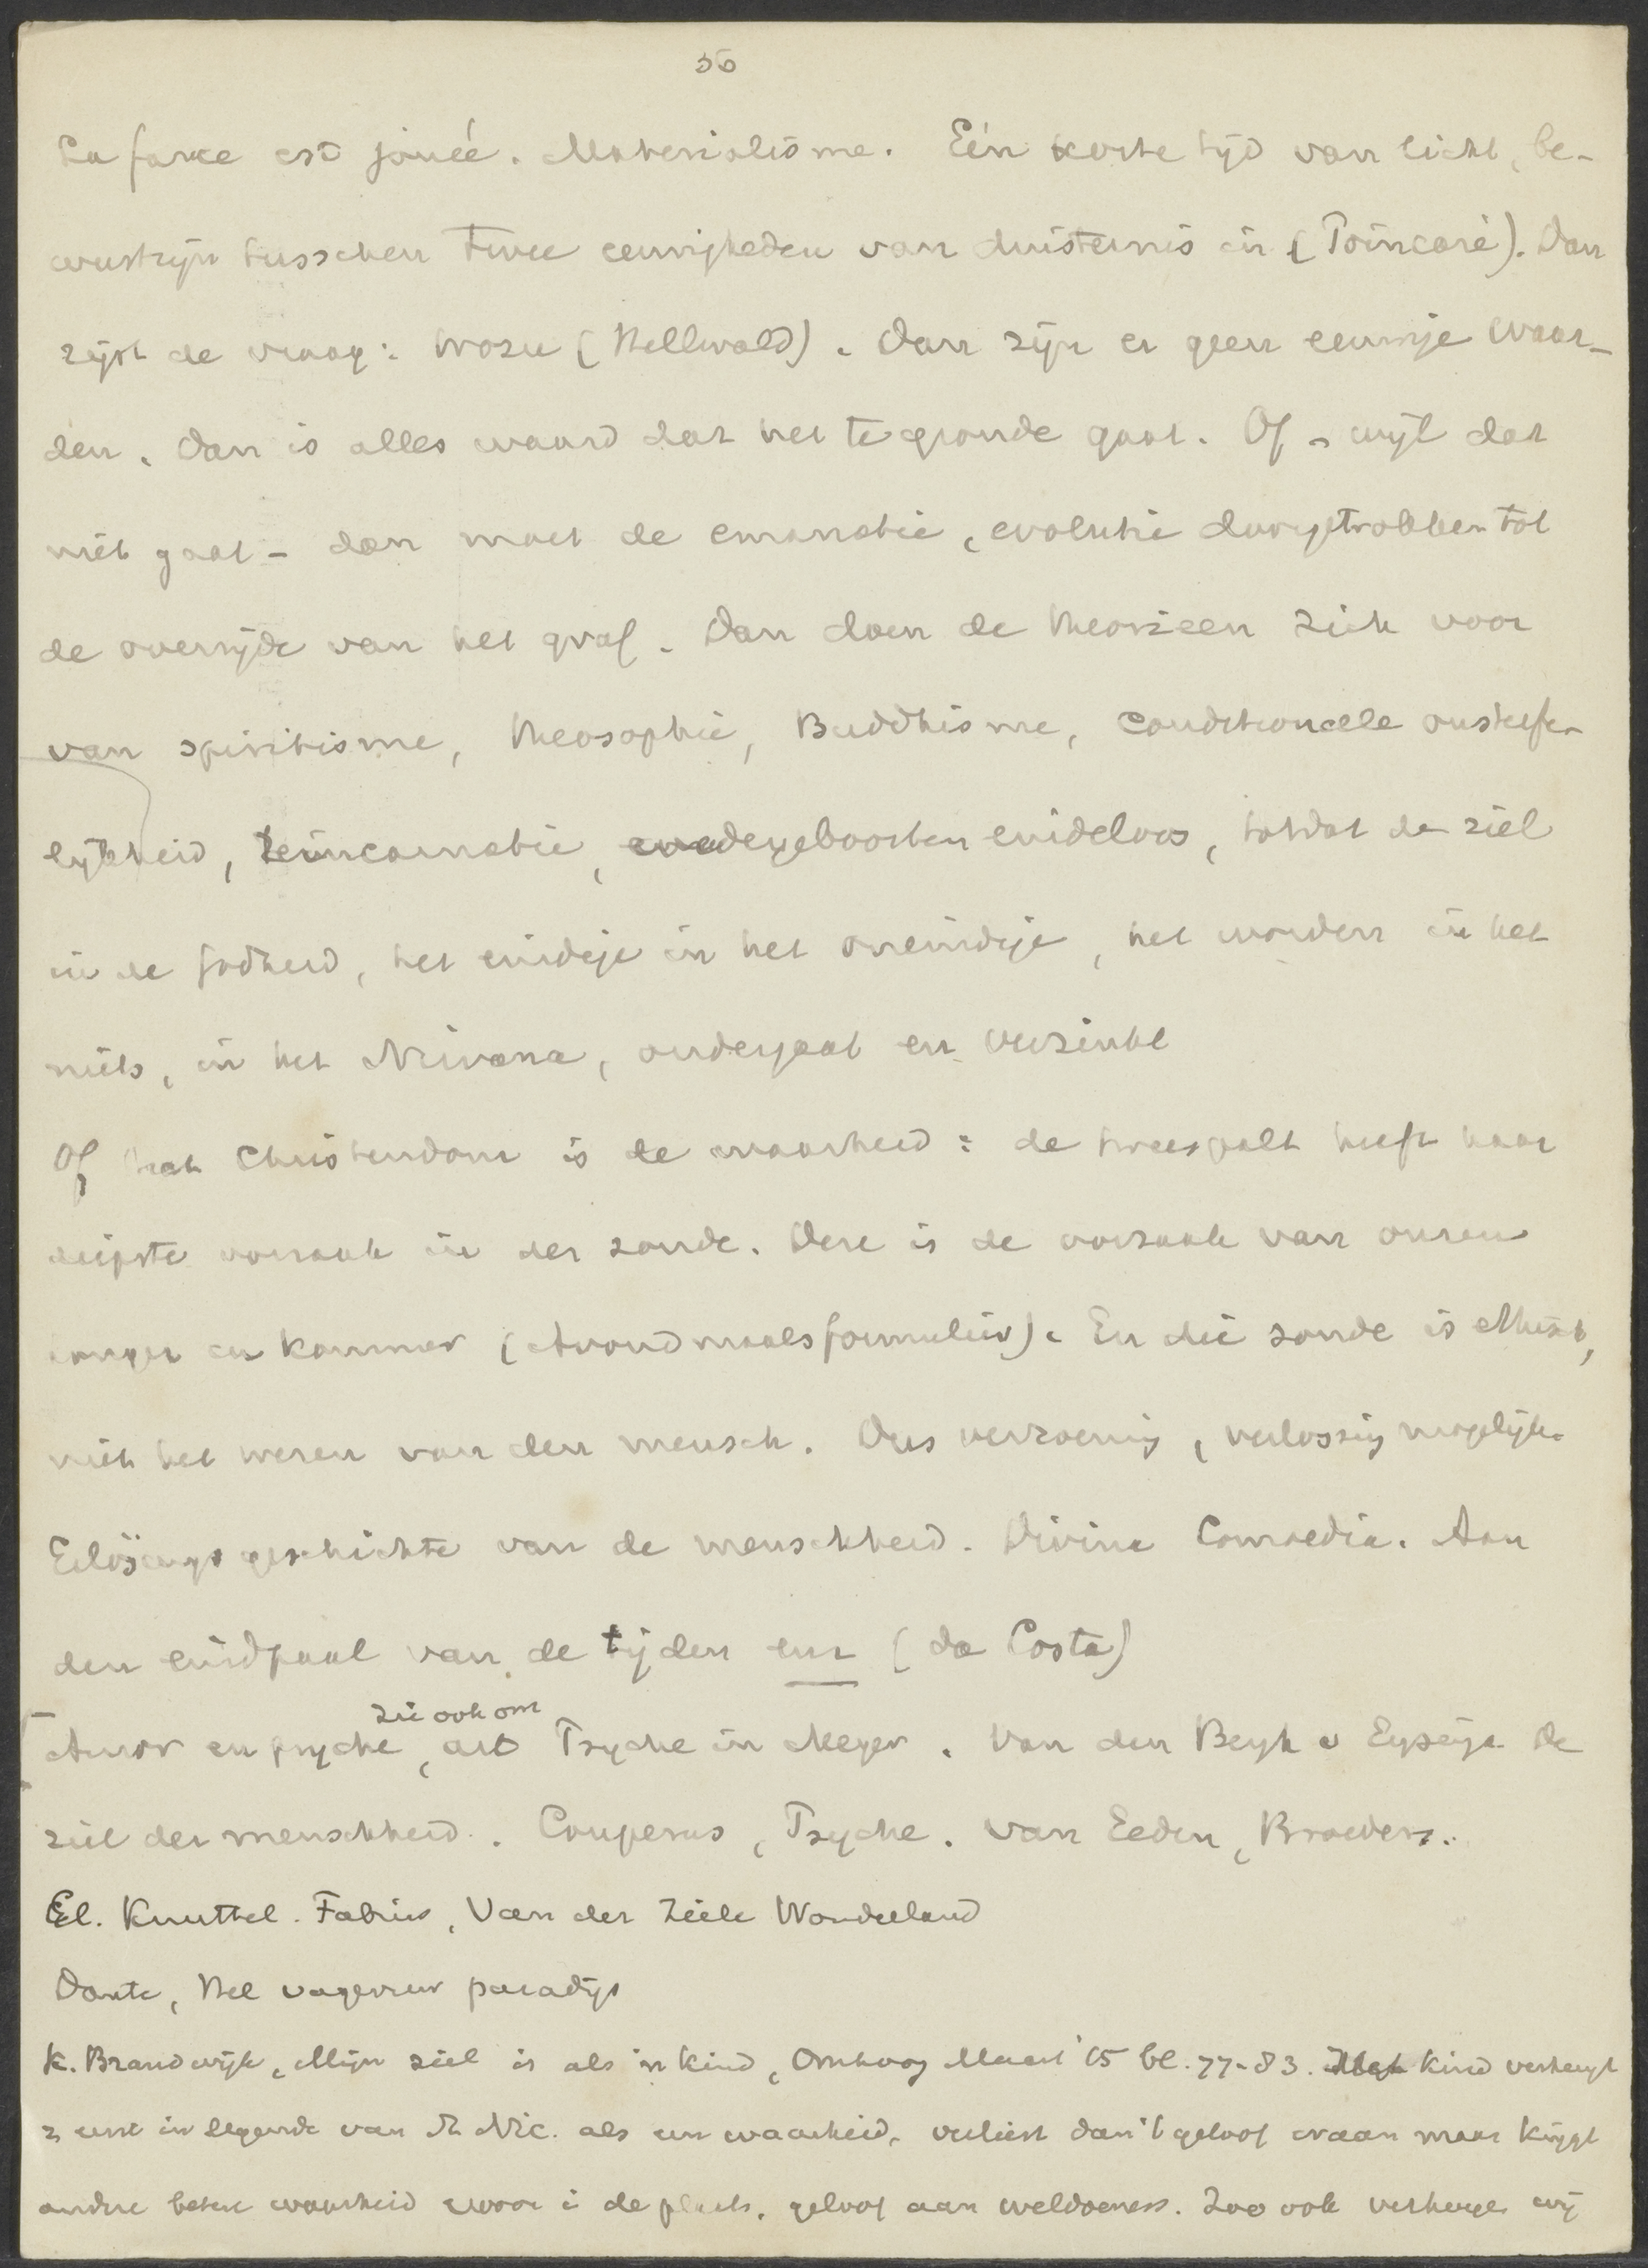 36
La farce est jouée. Materialisme. Eén korte tijd van licht, be-
wustzijn tusschen twee eeuwigheden van duisternis in (Poincaré). Dan
rijst de vraag: wozu (Hellwald). Dan zijn er geen eeuwige waar-
den. Dan is alles waard dat het te gronde gaat. Of - wijl dat
niet gaat - dan moet de emanatie, evolutie doorgetrokken tot
de overzijde van het graf. Dan doen de theorieen zich voor
van spiritisme, theosophie, Buddhisme, conditioneele onsterfe-
lijkheid, reincarnatie, wedergeboorten eindeloos, totdat de ziel
in de godheid, het eindige in het oneindige, het worden in het
niets, in het Nirvana, ondergaat en verzinkt
Of het Christendom is de waarheid: de tweespalt heeft haar
diepste oorzaak in der zonde. Deze is de oorzaak van onzen
honger en kommer (Avondmaalsformulier). En die zonde is
niet het wezen van den mensch. Dus verzoening, verlossing mogelijk.
Erlösungsgeschichte van de menschheid. Divina Comoedia. Aan
den eindpaal van de tijden een (da Costa)
zie ook om
Amor en psyche, art Psyche in Meyer. Van den Bergh v Eysinga De
ziel der menschheid. Couperus, Psyche. Van Eeden, Broeders.
El. Knuttel. Fabius, Van der Ziele Wonderland
Dante, Hel vagevuur paradijs
K. Brandwijk, Mijn ziel is als 'n kind, Omhoog Maart '15 bl. 77-83. Kind verheugt
z eerst in legende van St Nic. als een waarheid, verliest dan 't geloof eraan maar krijgt
andere betere waarheid ervoor i de plaats, geloof aan weldoeners. Zoo ook verheuge wij